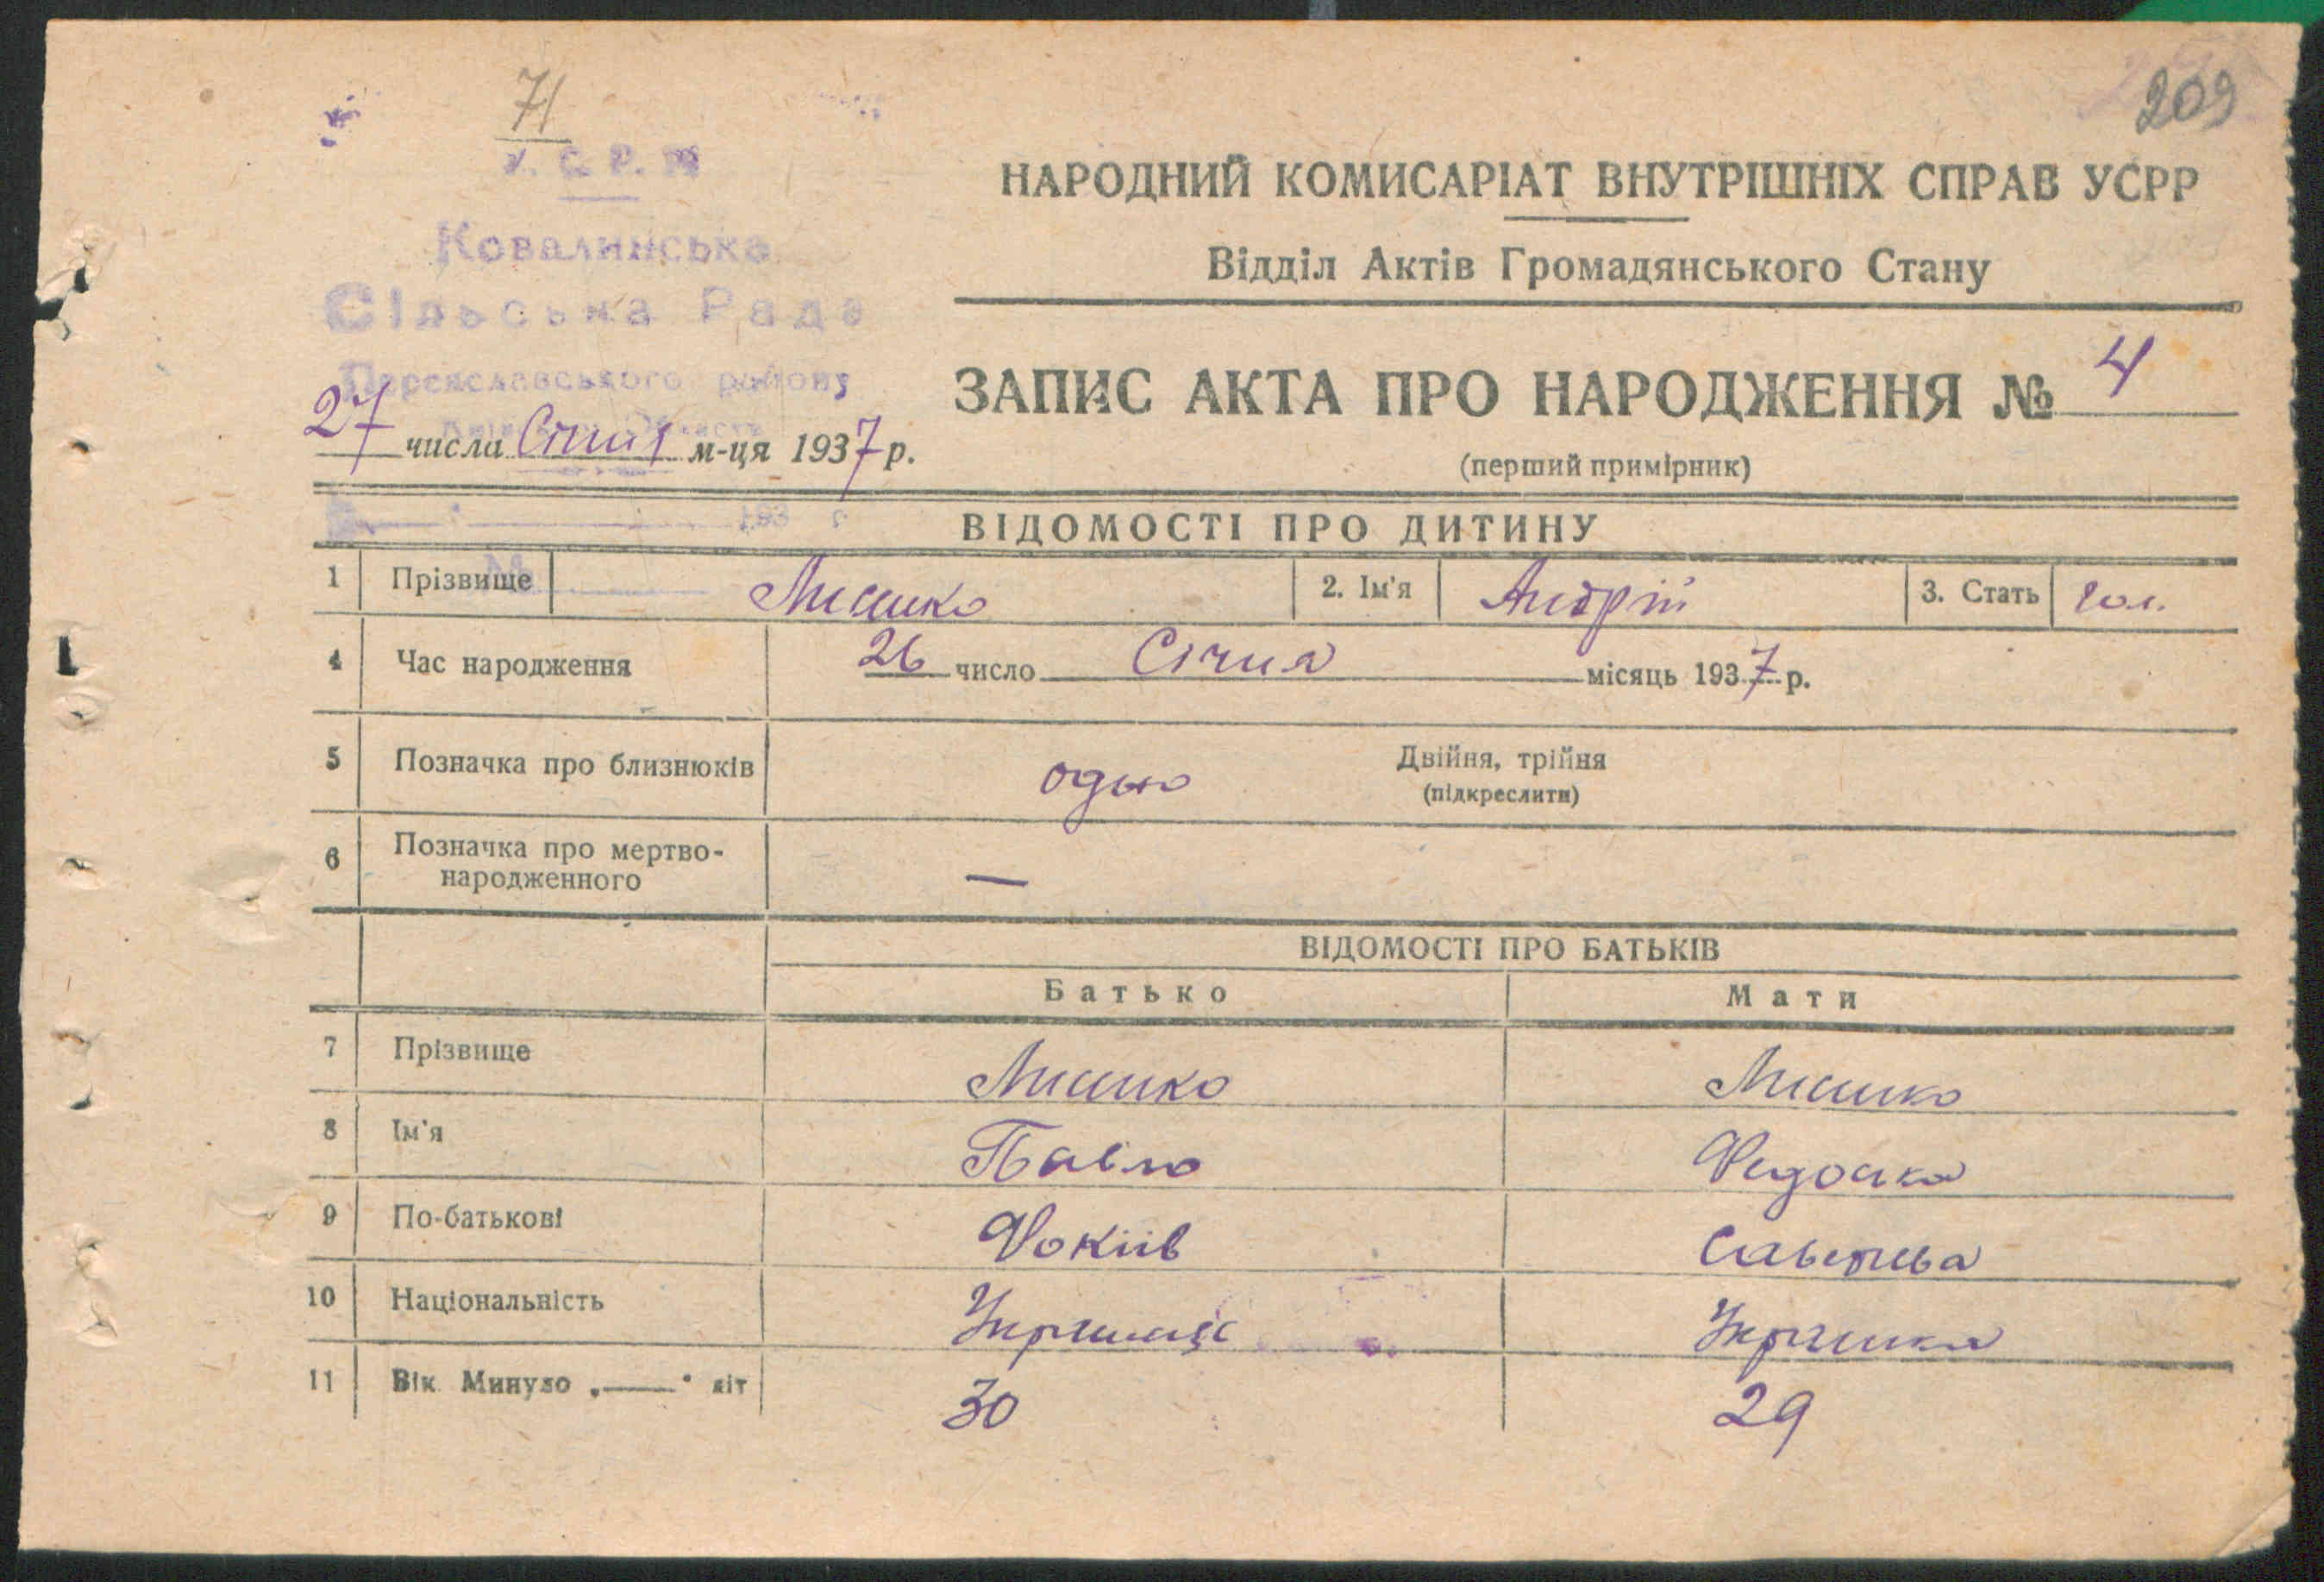 71
209
У. С. Р. Р.
Ковалинська
Сільська Рада
Переяславського району
НАРОДНИЙ КОМИСАРІАТ ВНУТРІШНІХ СПРАВ УСРР
Відділ Актів Громадянського Стану
ЗАПИС АКТА ПРО НАРОДЖЕННЯ № 4
27 числа Січня м-ця 1937 р.
(перший примірник)
193 р
ВІДОМОСТІ ПРО ДИТИНУ
1 Прізвище Лисенко 2. Ім'я Андрій 3. Стать чол.
4 Час народження 26 число Січня місяць 1937 р.
5 Позначка про близнюків одно Двійня, трійня
(підкреслити)
6 Позначка про мертво-
народженного —
ВІДОМОСТІ ПРО БАТЬКІВ
Батько Мати
7 Прізвище
8 Ім'я Павло Федоська
9 По-батькові Фокіів
10 Національність Українець Українка
11 Вік Минуло „——" літ 30 29